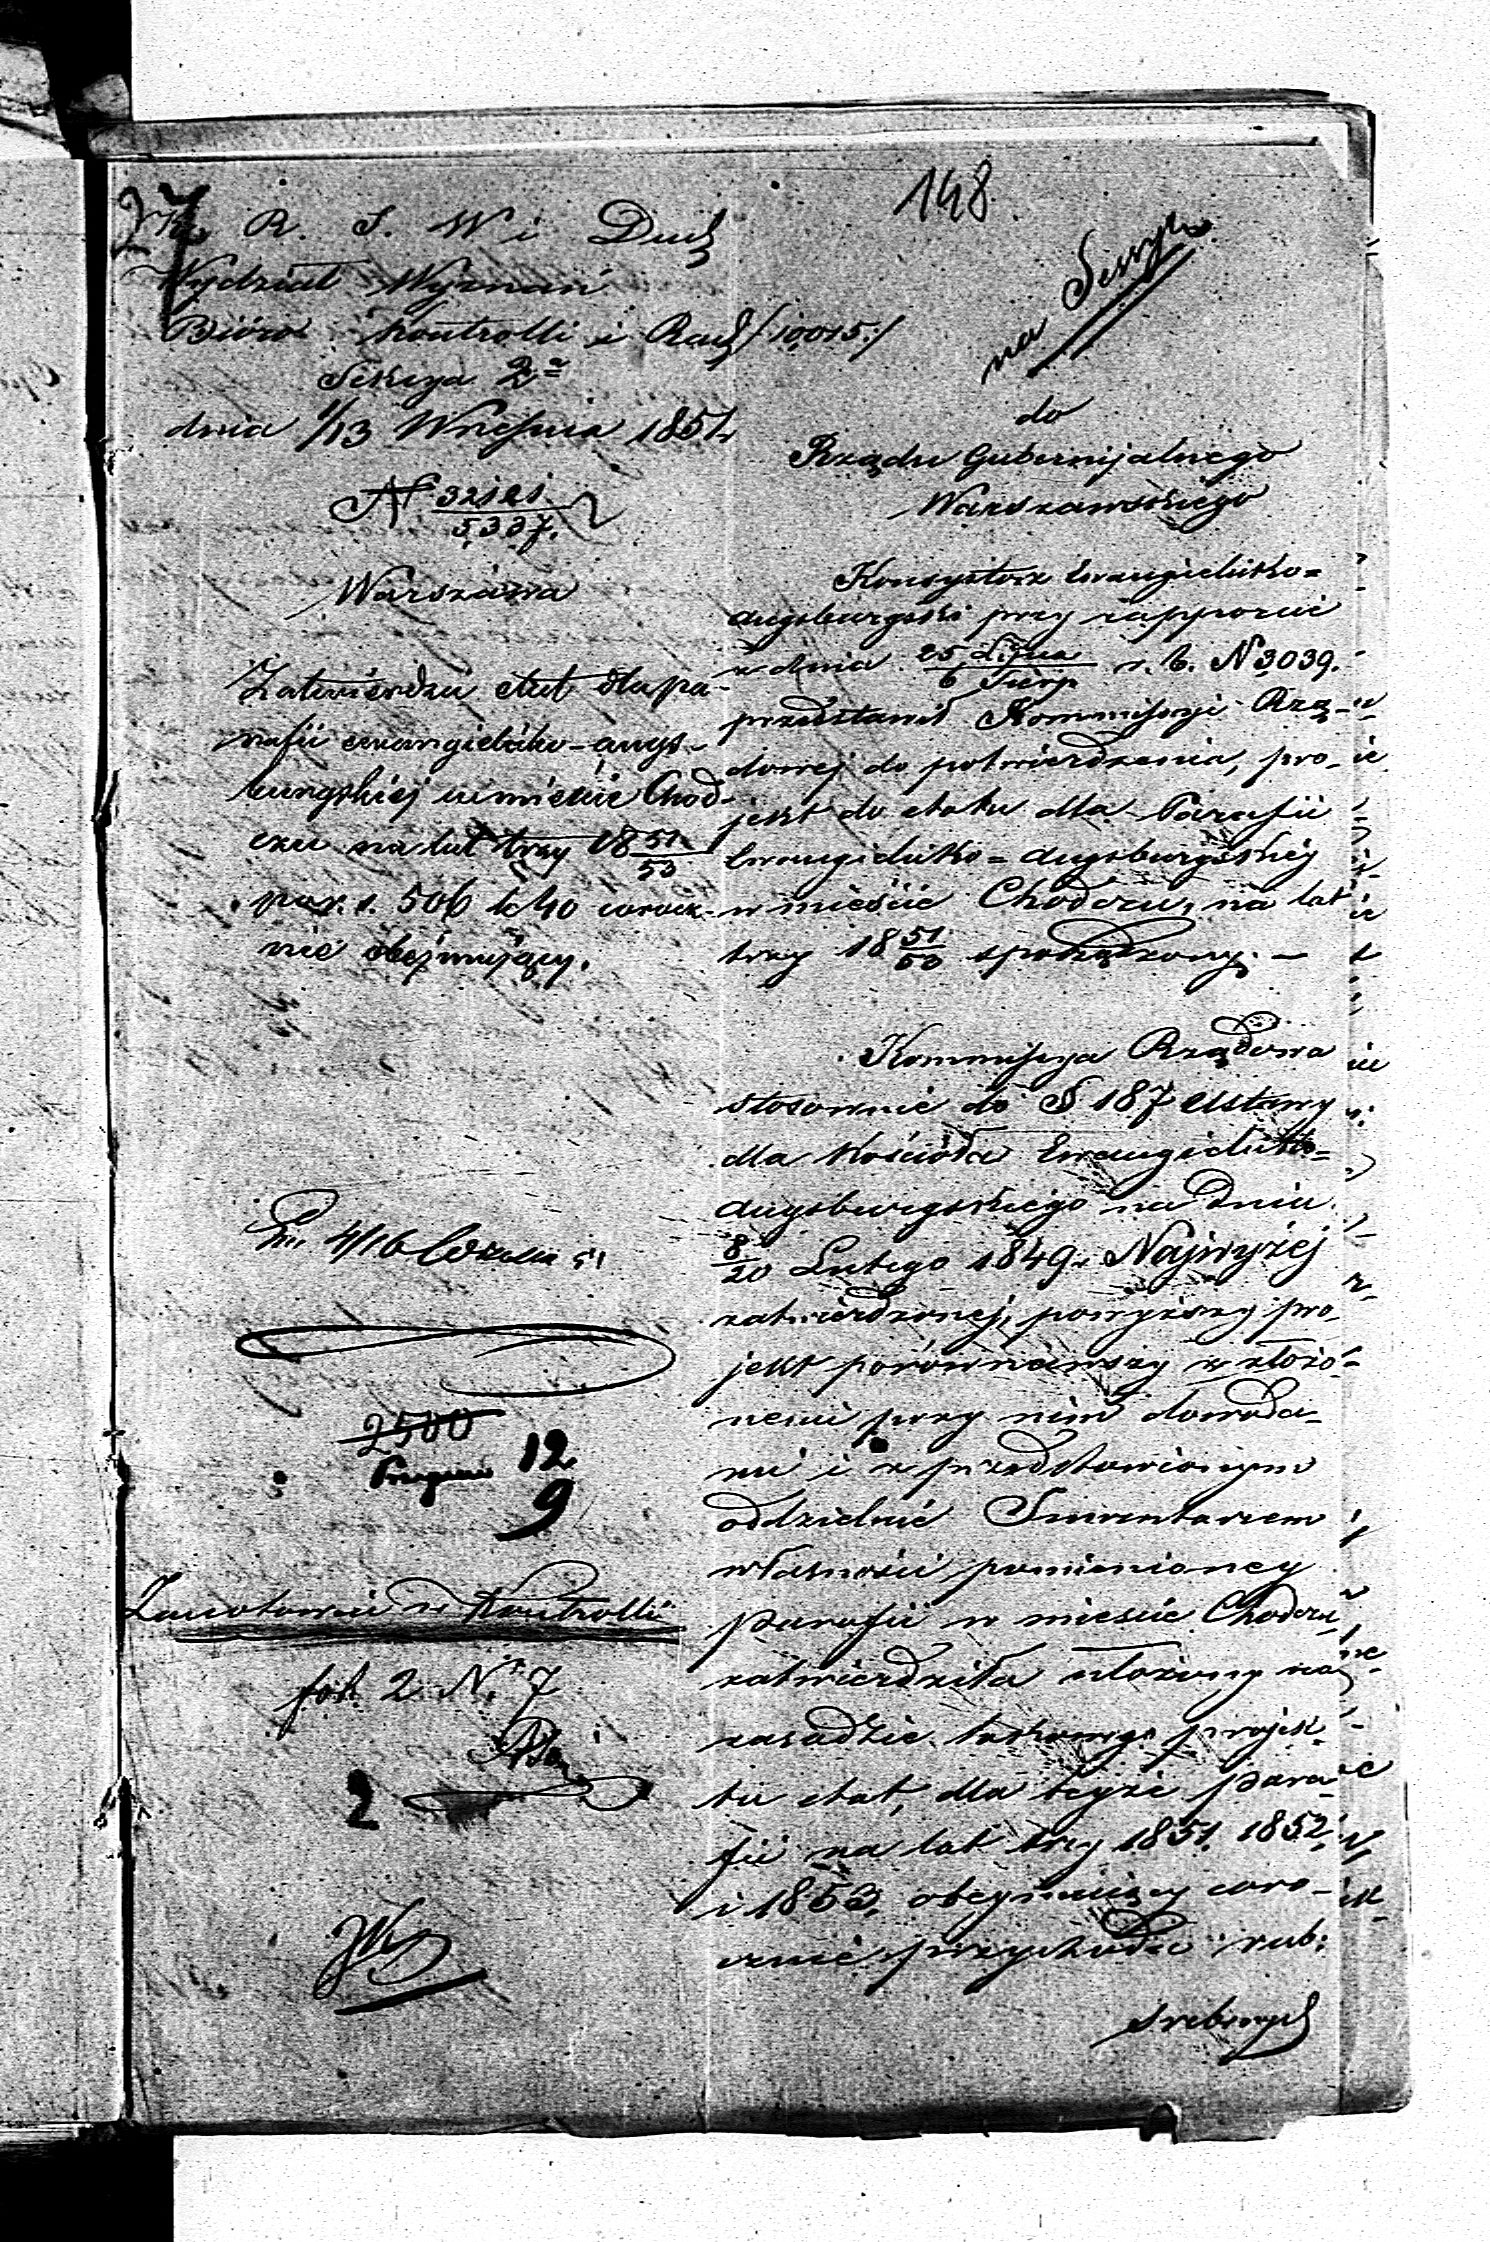 148
27
K. R. S. W i Duch
Wydział Wyznań
Bióro Kontrolli i Rach /10,015:/
Sekcya 2ª
dnia 1/13 Września 1851 r
N 32101/5,337.
Warszawa
Zatwierdza etat dla pa-
rafii ewangelicko-augs-
burgskiej w mieście Chod-
czu na lat trzy 18 51/53
par. r. 506 k 40 corocz-
nie obejmujący.
4/16 51
2500
12
9
Zanotowano w Kontrolli
fol. 2 N. 7
2
na Sessyą
do
Rządu Gubernijalnego
Warszawskiego
Konsystorz Ewangielicko=
Augsburgski przy rapporcie
z dnia 25 Lipca/6 Sierp r. b. N 3,039.
przedstawił Kommissyi Rzą-
dowej do potwierdzenia, pro-
jekt do etatu dla Parafii
Ewangielicko=Augsburgskiej
w mieście Chodczu, na lat
trzy 18 51/53 sporządzony. –
Kommissya Rządowa
stosownie do § 187 Ustawy
dla Kościoła Ewangielicko=
Augsburgskiego na dniu
8/20 Lutego 1849 r. Najwyżej
zatwierdzonej, powyższy pro-
jekt porównawszy z złożo-
nemi przy nim dowoda-
mi i z przedstawionym
oddzielnie Inwentarzem
własności pomienioney
Parafii w mieście Chodczu,
zatwierdziła ułożony na
zasadzie takowego projek-
tu etat, dla tejże Para-
fii na lat trzy 1851, 1852,
i 1853, obejmujący coro-
cznie przychodu rub:
srebrnych